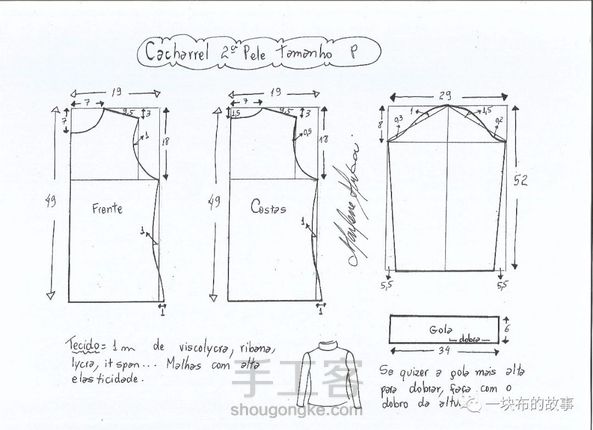 Cacharrel 2ª Pele Tamanho P
19
7
9,5
3
7
1
18
49
Frente
1
1
19
7
1,5
9,5
3
0,5
18
49
Costas
1
1
29
8
0,3
1
1,5
0,2
52
5,5
5,5
Gola
dobra
6
34
Tecido = 1 m de viscolycra, ribana,
lycra, it span... Malhas com alta
elasticidade.
Se quizer a gola mais alta
para dobrar, faça com o
dobro da altu
手工客
shougongke.com
一块布的故事